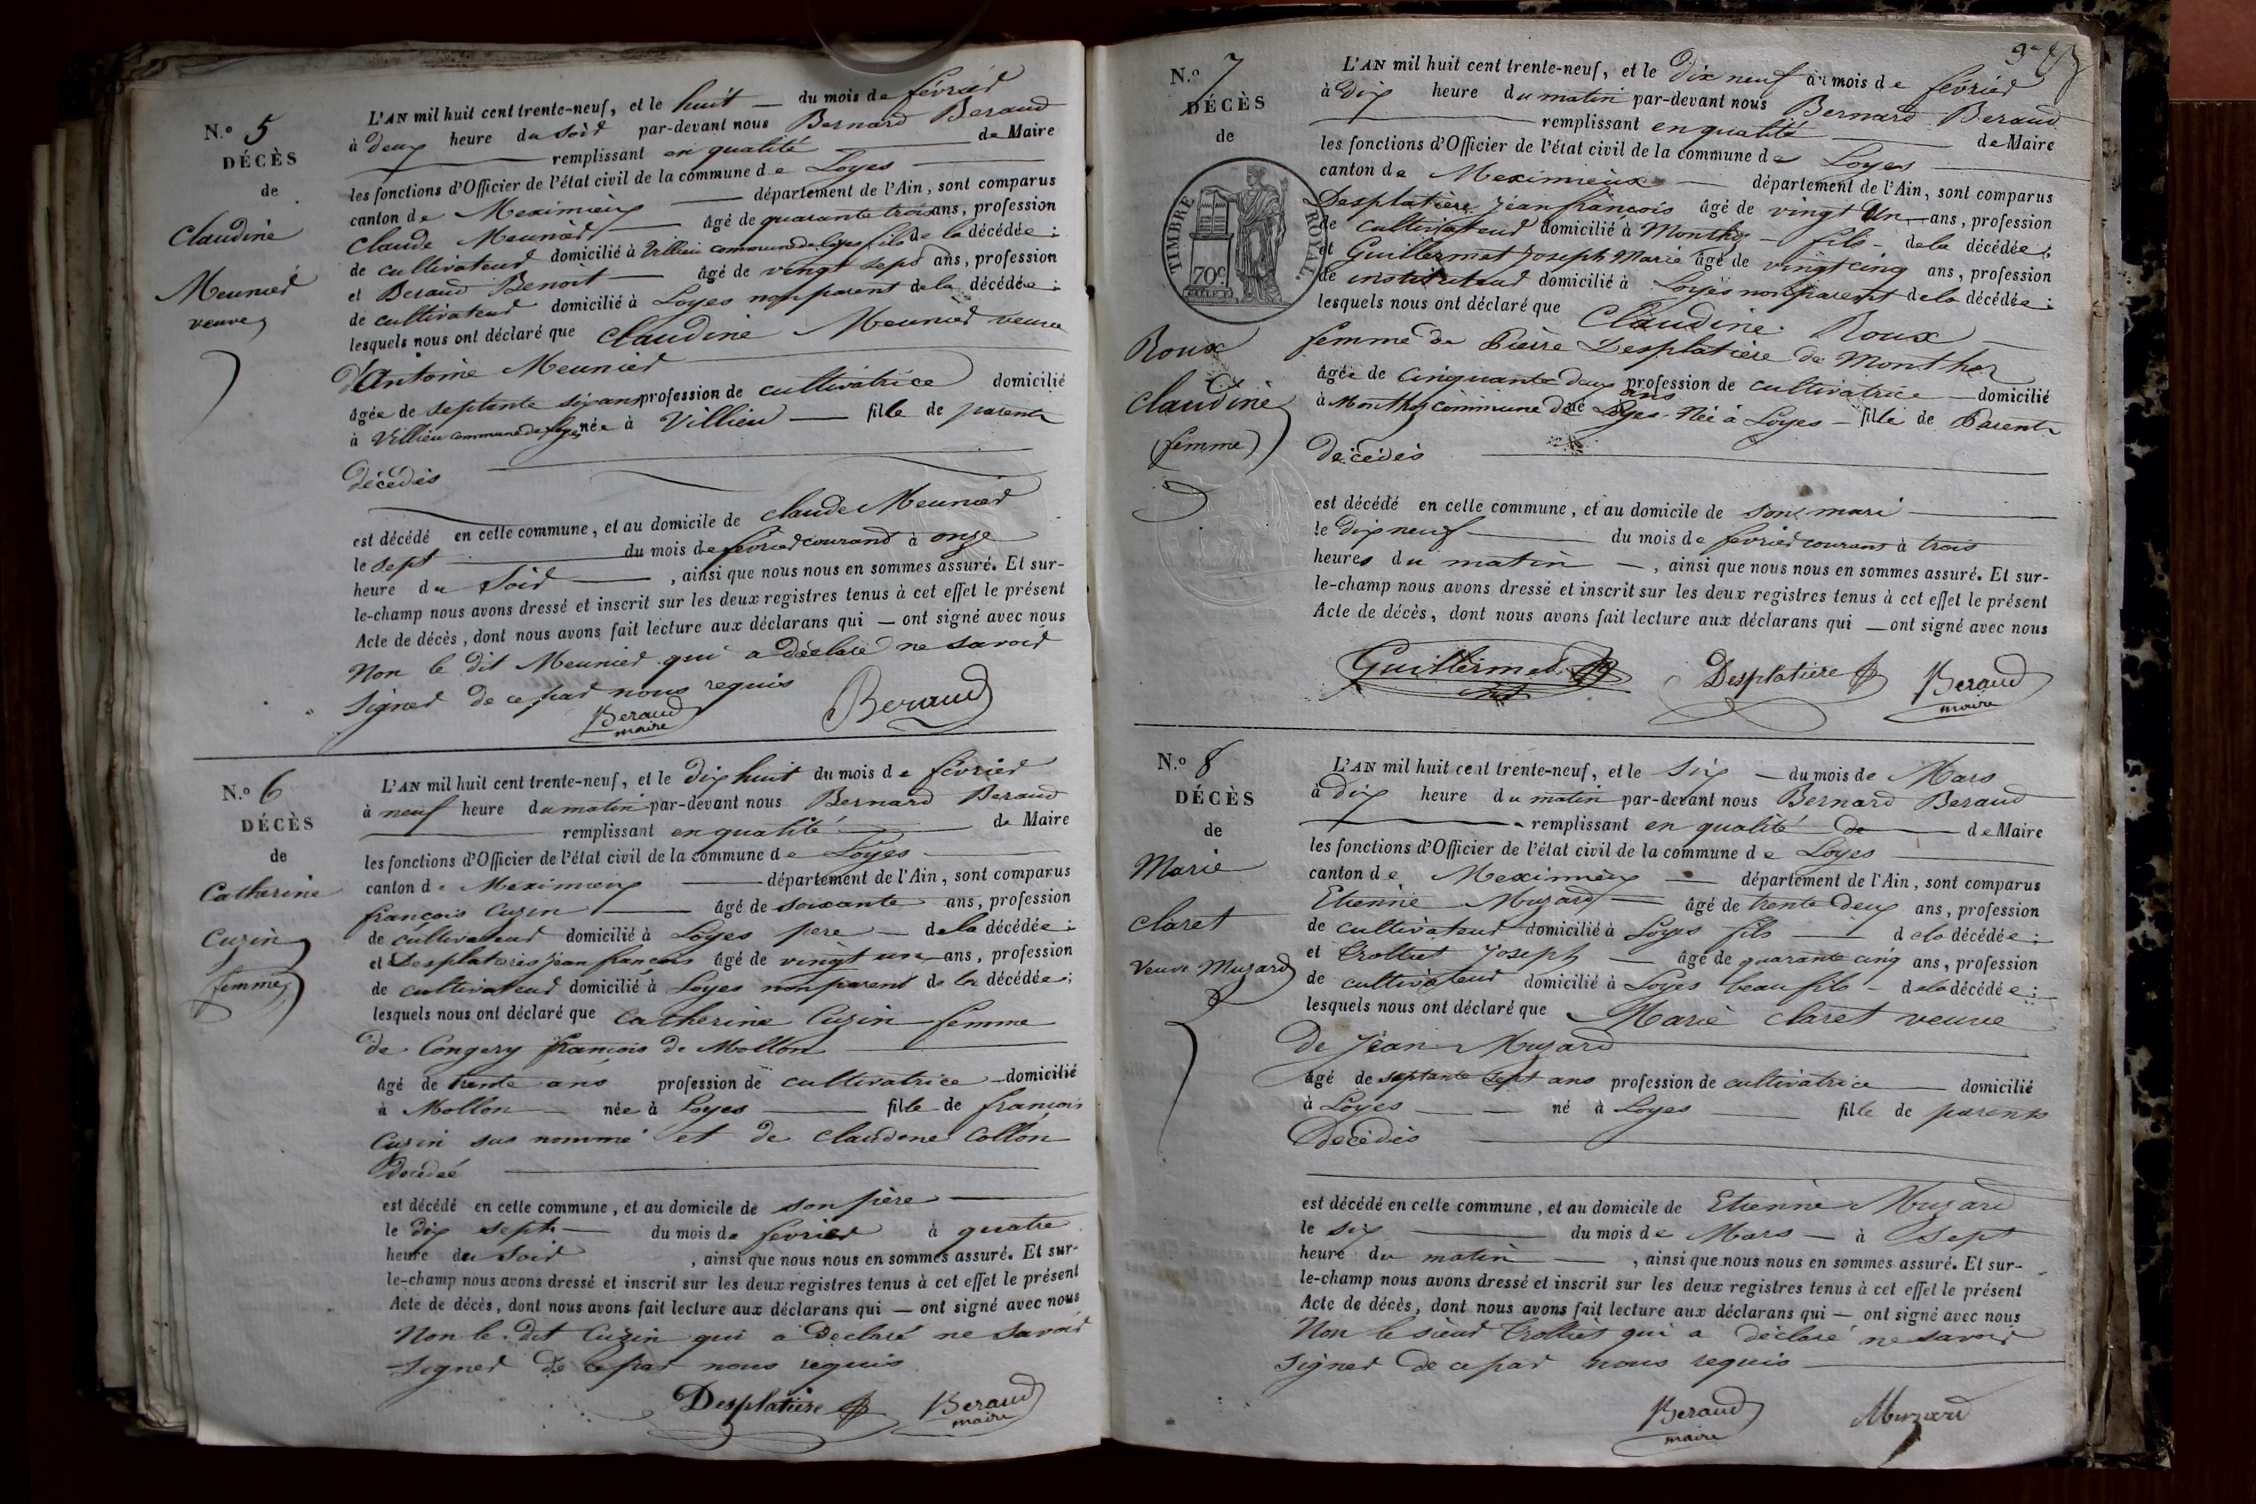 N.º 5
DÉCÈS
de
Claudine
Meunier
veuve
L'AN mil huit cent trente-neuf, et le huit du mois de février
à deux heure du soir par-devant nous Bernard Beraud
remplissant en qualité de Maire
les fonctions d'Officier de l'état civil de la commune de Loyes
canton de Meximieux département de l'Ain, sont comparus
Claude Meunier âgé de quarante trois ans, profession
de cultivateur domicilié à Villieu commune de Loyes fils de la décédée;
et Beraud Benoit âgé de vingt sept ans, profession
de cultivateur domicilié à Loyes non parent de la décédée;
lesquels nous ont déclaré que Claudine Meunier veuve
d'Antoine Meunier
âgée de septente six ans profession de cultivatrice domicilié
à Villieu commune de Loyes née à Villieu fille de parents
décédés
est décédé en cette commune, et au domicile de Claude Meunier
le sept du mois de février courant à onze
heure du soir, ainsi que nous nous en sommes assuré. Et sur-
le-champ nous avons dressé et inscrit sur les deux registres tenus à cet effet le présent
Acte de décès, dont nous avons fait lecture aux déclarans qui — ont signé avec nous
Non le dit Meunier qui a déclaré ne savoir
signer de ce par nous requis
Beraud
maire
Beraud
N.º 6
DÉCÈS
de
Catherine
Cuzin
femme
L'AN mil huit cent trente-neuf, et le dix huit du mois de février
à neuf heure du matin par-devant nous Bernard Beraud
remplissant en qualité de Maire
les fonctions d'Officier de l'état civil de la commune de Loyes
canton de Meximieux département de l'Ain, sont comparus
françois Cuzin âgé de soixante ans, profession
de cultivateur domicilié à Loyes pere de la décédée;
et Desplatieres jean françois âgé de vingt un ans, profession
de cultivateur domicilié à Loyes non parent de la décédée;
lesquels nous ont déclaré que Catherine Cuzin femme
de Congery françois de Mollon
âgé de trente ans profession de cultivatrice domicilié
à Mollon née à Loyes fille de françois
Cuzin sus nommé et de Claudene Collon
Décédeé
est décédé en cette commune, et au domicile de son père
le dix sept du mois de février à quatre
heure du soir, ainsi que nous nous en sommes assuré. Et sur-
le-champ nous avons dressé et inscrit sur les deux registres tenus à cet effet le présent
Acte de décès, dont nous avons fait lecture aux déclarans qui — ont signé avec nous
Non le dit Cuzin qui a Declaré ne savoir
signer de ce par nous requis
Desplatiere
Beraud
maire
N.º 7
DÉCÈS
de
TIMBRE ROYAL.
70c
Roux
Claudine
(femme)
L'AN mil huit cent trente-neuf, et le dix neuf du mois de février
à Dix heure du matin par-devant nous Bernard Beraud
remplissant en qualité de Maire
les fonctions d'Officier de l'état civil de la commune de Loyes
canton de Meximieux département de l'Ain, sont comparus
Desplatière jean françois âgé de vingt Un ans, profession
de cultivateur domicilié à Monthoz fils de la décédée;
et Guillermet Joseph Marie âgé de vingt cinq ans, profession
de instituteur domicilié à Loyes non parent de la décédée;
lesquels nous ont déclaré que Claudine Roux
femme de Pierre Desplatière de Monthoz
âgée de cinquante deux ans profession de cultivatrice domicilié
à Monthoz commune de Loyes Née à Loyes fille de Parents
décédés
est décédé en cette commune, et au domicile de son mari
le Dix neuf du mois de fevrier courant à trois
heures du matin, ainsi que nous nous en sommes assuré. Et sur-
le-champ nous avons dressé et inscrit sur les deux registres tenus à cet effet le présent
Acte de décès, dont nous avons fait lecture aux déclarans qui — ont signé avec nous
Guillermet
Desplatiere
Beraud
maire
N.º 8
DÉCÈS
de
Marie
Claret
Veuve Muzard
L'AN mil huit cent trente-neuf, et le six du mois de Mars
à Dix heure du matin par-devant nous Bernard Beraud
remplissant en qualité de de Maire
les fonctions d'Officier de l'état civil de la commune de Loyes
canton de Meximieux département de l'Ain, sont comparus
Etienne Muzard âgé de trente deux ans, profession
de cultivateur domicilié à Loyes fils de la décédée;
et Trolliet Joseph âgé de quarante cinq ans, profession
de cultivateur domicilié à Loyes beau fils de la décédée;
lesquels nous ont déclaré que Marie Claret veuve
De Jean Muzard
âgé de septante sept ans profession de cultivatrice domicilié
à Loyes né à Loyes fille de parents
Décédés
est décédé en cette commune, et au domicile de Etienne Muzard
le six du mois de Mars à sept
heure du matin, ainsi que nous nous en sommes assuré. Et sur-
le-champ nous avons dressé et inscrit sur les deux registres tenus à cet effet le présent
Acte de décès, dont nous avons fait lecture aux déclarans qui — ont signé avec nous
Non le sieur Trolliet qui a déclaré ne savoir
signer de ce par nous requis
Beraud
maire
Muzard